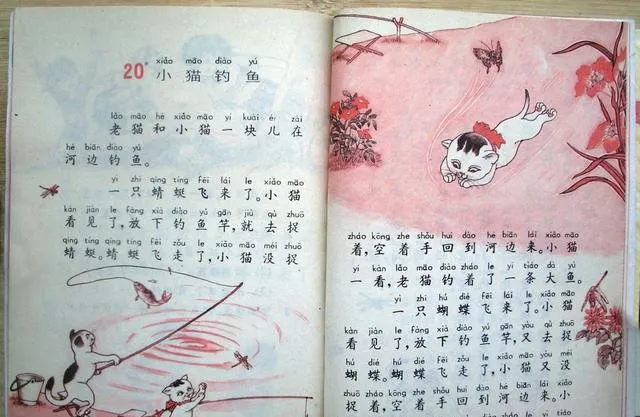 xiǎo māo diào yú
20* 小猫钓鱼
lǎo māo hé xiǎo māo yí kuài ér zài
老猫和小猫一块儿在
hé biān diào yú
河边钓鱼。
yì zhī qīng tíng fēi lái le xiǎo māo
一只蜻蜓飞来了。小猫
kàn jiàn le fàng xià diào yú gān jiù qù zhuō
看见了,放下钓鱼竿,就去捉
qīng tíng qīng tíng fēi zǒu le xiǎo māo méi zhuō
蜻蜓。蜻蜓飞走了,小猫没捉
zháo kōng zhe shǒu huí dào hé biān lái xiǎo māo
着,空着手回到河边来。小猫
yí kàn lǎo māo diào zháo le yì tiáo dà yú
一看,老猫钓着了一条大鱼。
yì zhī hú dié fēi lái le xiǎo māo
一只蝴蝶飞来了。小猫
kàn jiàn le fàng xià diào yú gān yòu qù zhuō
看见了,放下钓鱼竿,又去捉
hú dié hú dié fēi zǒu le xiǎo māo yòu méi
蝴蝶。蝴蝶飞走了,小猫又没
zhuō zháo kōng zhe shǒu huí dào hé biān lái
捉着,空着手回到河边来